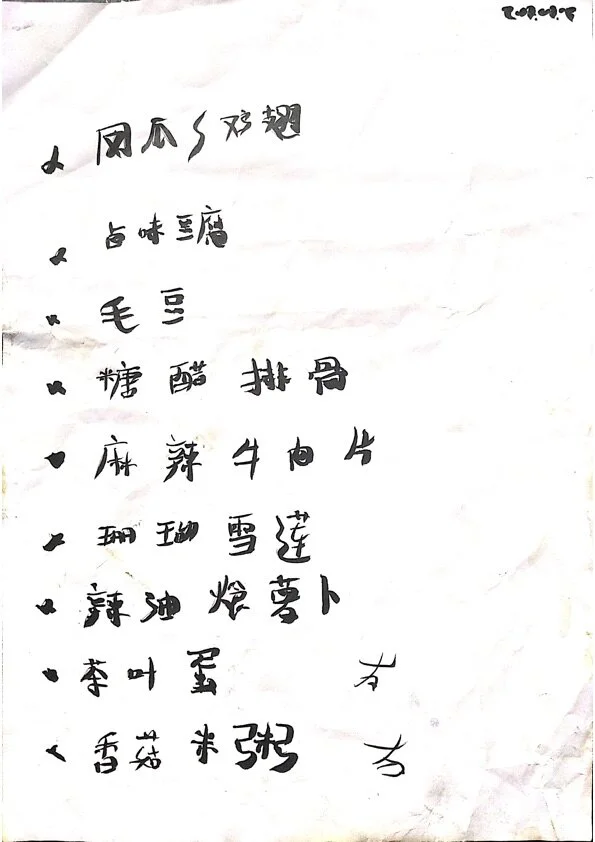 凤爪 鸡翅
卤味豆腐
毛豆
糖醋排骨
麻辣牛肉片
珊瑚雪莲
辣油 萝卜
茶叶蛋 有
香菇米粥 有